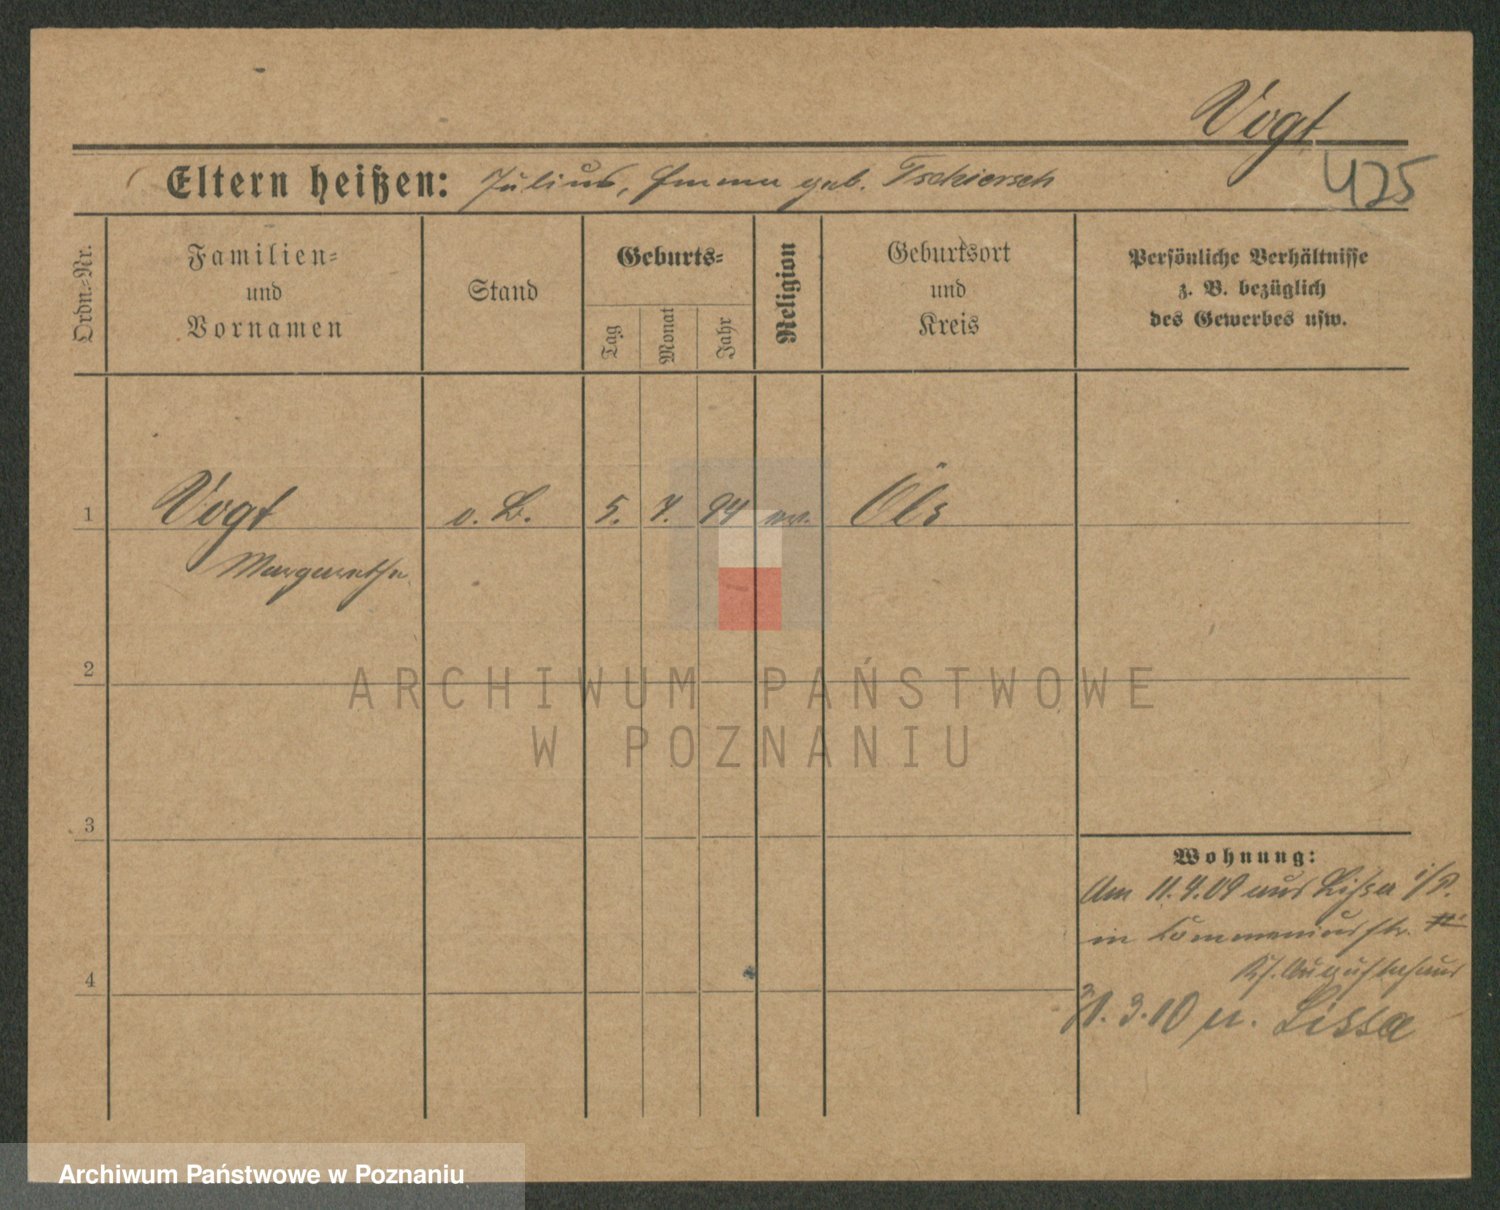 Vogt
Eltern heißen: Julius, Emma geb. Tschiersch
425
Ordn.-Nr.
Familien-
und
Vornamen
Stand
Geburts-
Tag
Monat
Jahr
Religion
Geburtsort
und
Kreis
Persönliche Verhältnisse
z. B. bezüglich
des Gewerbes usw.
1
Vogt
o. B. 5. 7. 94 ev. Öls
Margarethe
2
ARCHIWUM PAŃSTWOWE
W POZNANIU
3
Wohnung:
Am 11.4.09 aus Lissa i/P.
in Commeniusstr.
Augustahaus
4
31. 3. 10 n. Lissa
Archiwum Państwowe w Poznaniu